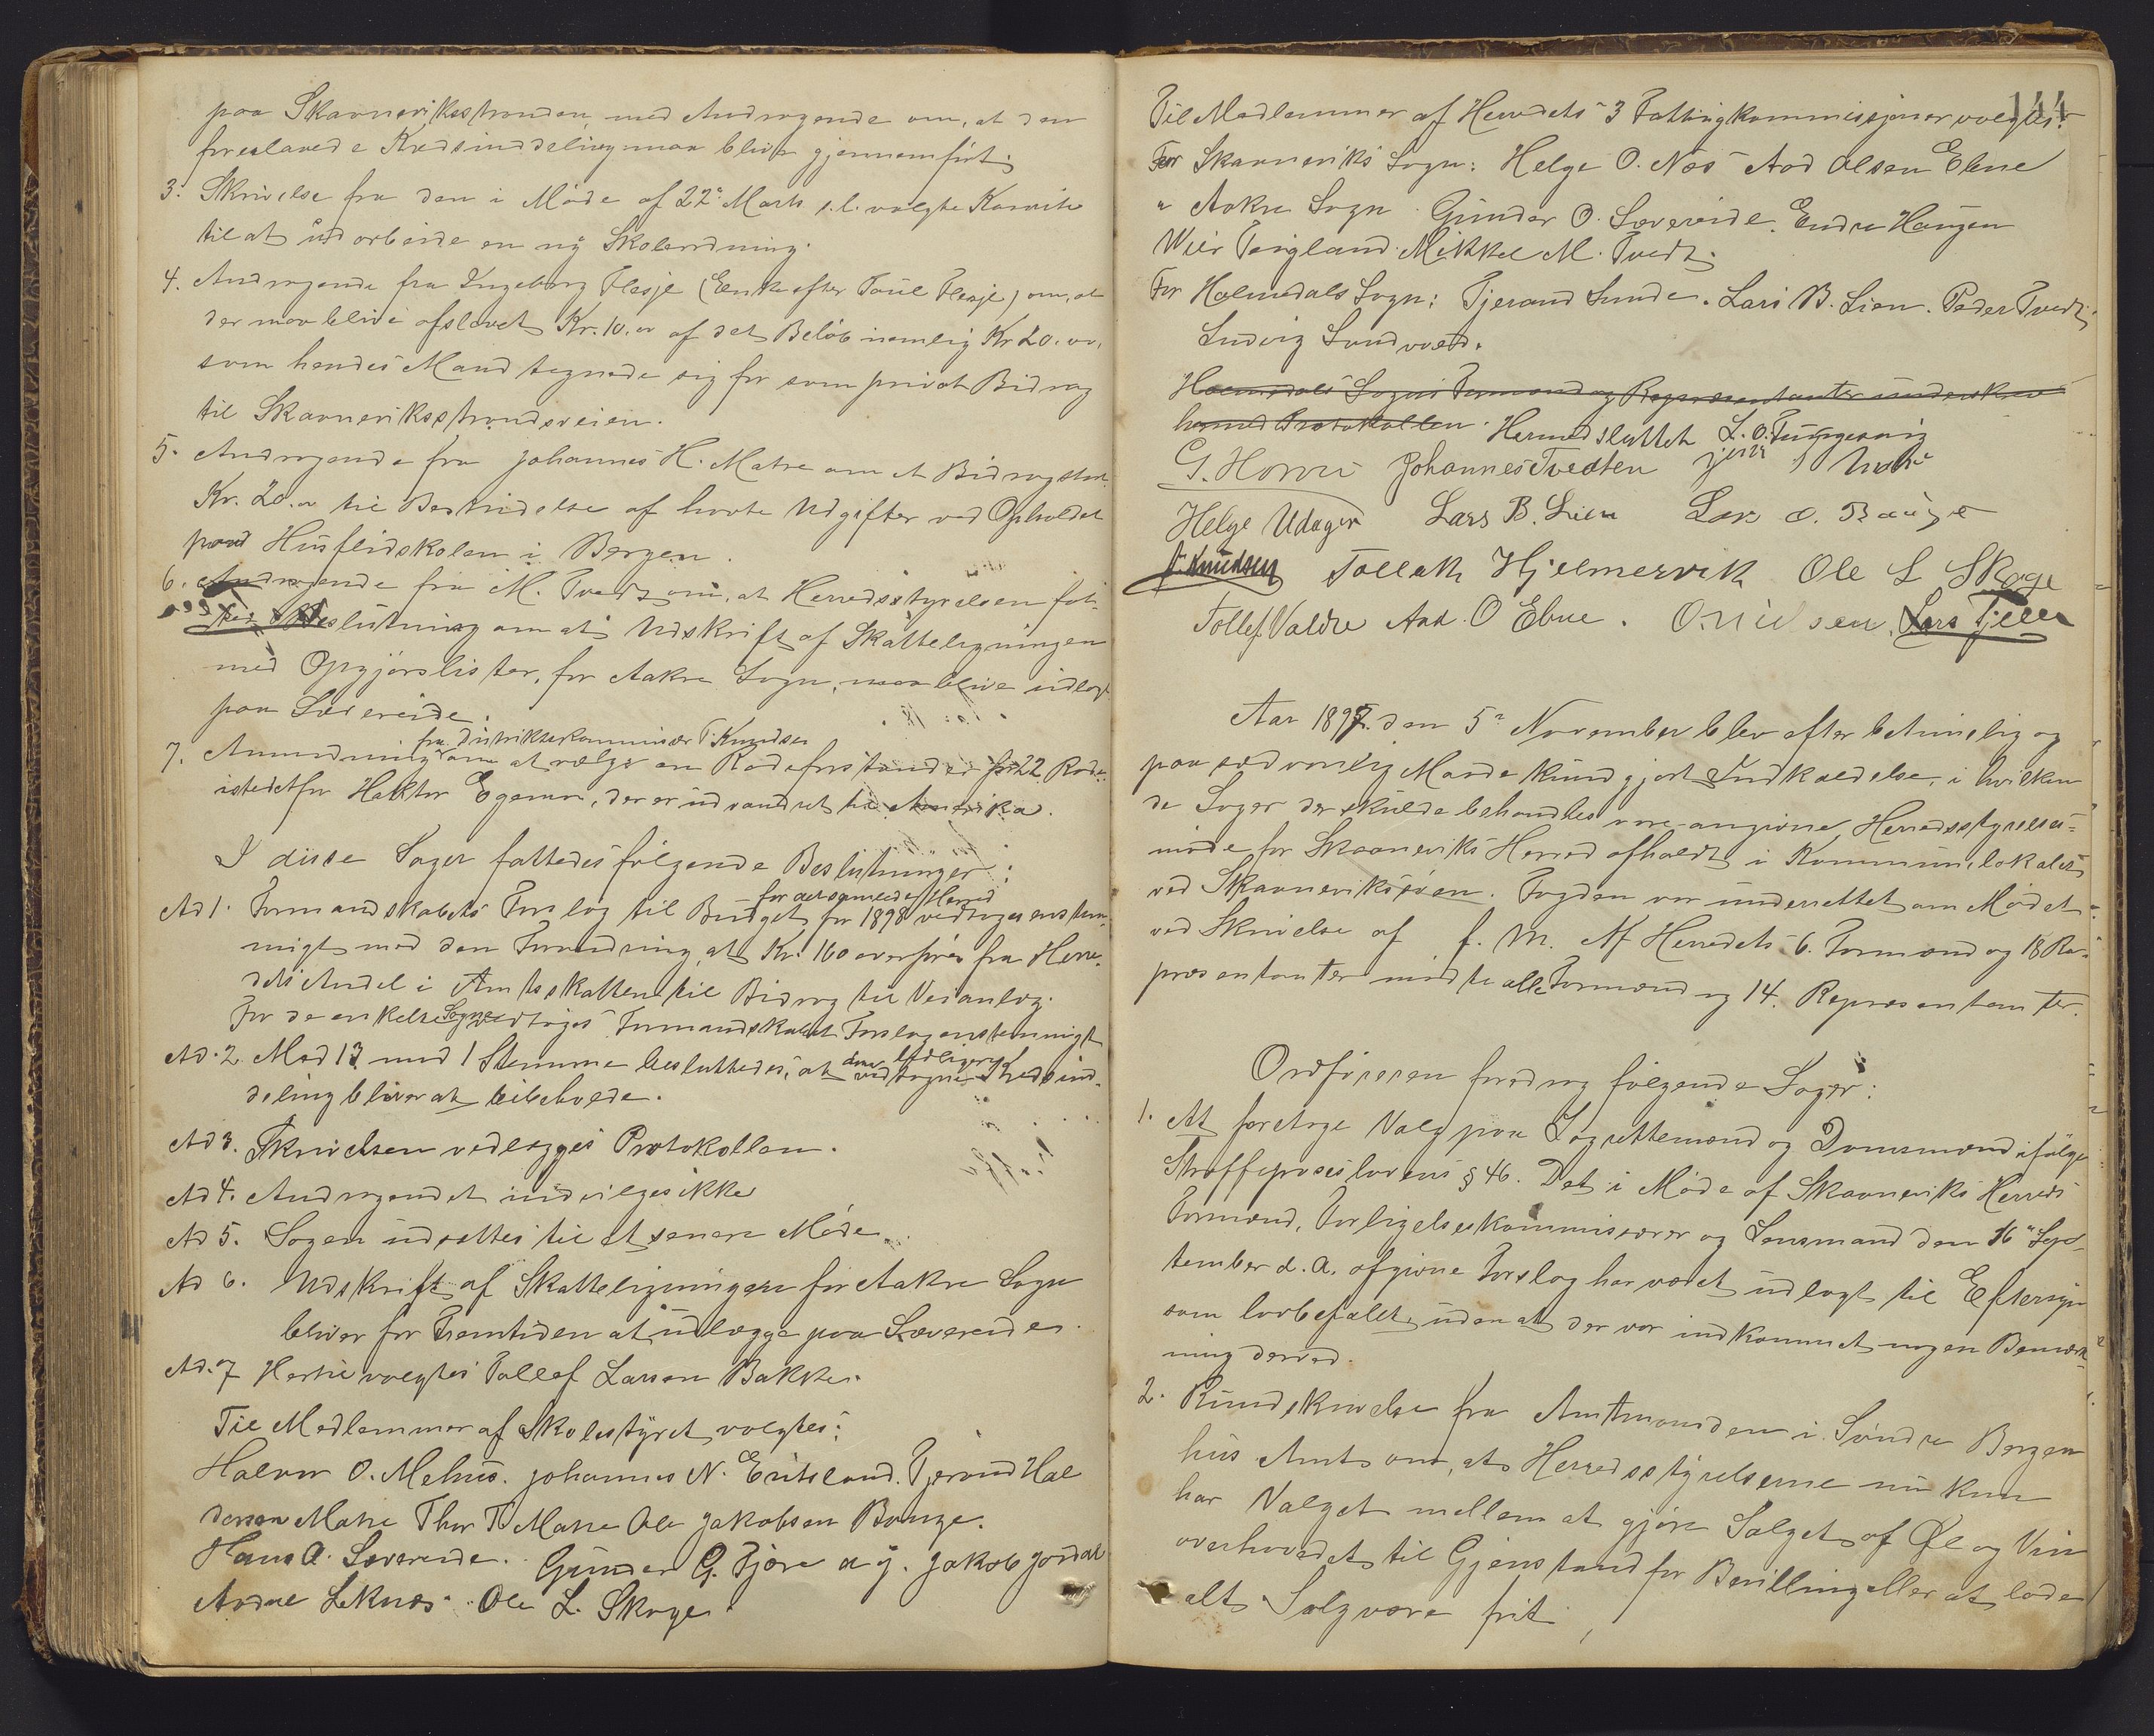 paa Skaaneviksstranden, med Andragende om, at den
foreslaaede Kredsinddeling maa blive gjennemført.
3. Skrivelse fra den i Møde af 22. Marts s.l. valgte Komite
til at udarbeide en ny Skoleordning.
4. Andragende fra Ingeborg Flesje (Enke efter Poul Flesje) om, at
der maa blive afslaaet Kr. 10.00 af det Beløb nemlig Kr 20.00,
som hendes Mand tegnede sig for som privat Bidrag
til Skaaneviksstrandsveien.
5. Andragende fra Johannes H. Matre om et Bidrag stort
Kr. 20.00 til Bestridelse af havte Udgifter ved Opholdet
paa Husflidskolen i Bergen.
6. Andragende fra M. Tvedt om, at Herredsstyrelsen fat-
ter Beslutning om at Udskrift af Skatteligningen
med Opgjørslister, for Aakre Sogn, maa blive udlagt
paa Sævereide.
fra Distriktskommisær T. Knudsen
7. Anmodning om at vælge en Rodeforstander for 22 Rode
istedetfor Haktor Egemo, der er udvandret til Amerika.
I disse Sager fattedes følgende Beslutninger:
for det samlede Herred
Ad 1. Formandskabets Forslag til Budget for 1898 vedtoges enstem-
migt med den Forandring, at Kr. 160 overføres fra Herre-
dets Andel i Amtsskatten til Bidrag til Veianlæg.
For de enkelte Sogne vedtoges Formandskabet Forslag enstemmigt
Ad. 2. Mod 13 mod 1 Stemme besluttedes, at den tidligere vedtagne Kredsind-
deling bliver at beibeholde.
Ad 3. Skrivelsen vedlægges Protokollen.
Ad 4. Andragendet indvilges ikke
Ad 5. Sagen udsættes til et senere Møde.
Ad 6. Udskrift af Skatteligningen for Aakre Sogn
bliver for Fremtiden at udlægge paa Sævereide.
Ad. 7 Hertil valgtes Tollef Larsen Bakke.
Til Medlemmer af Skolestyret valgtes:
Halvor O. Mehus. Johannes N. Eritsland. Tjerand Hal
dorsen Matre Thor T. Matre Ole Jakobsen Bauge.
Hans O. Sævereide. Gunder G. Fjære a y. Jakob Jordal
Leknæs. Ole L. Skoge.
144
Til Medlemmer af Herredets 3 Fattigkommissjoner valgtes:
For Skaaneviks Sogn: Helge O. Næs Aad Olsen Ebne
" Aakre Sogn Gunder O. Sævereide. Endre Haugen
Teigland. Mikkel M. Tvedt.
For Holmedals Sogn: Tjerand Sunde. Lars B. Lien. Peder Tvedt,
Ludvig Sandvoed.
Holmedals Sogns Formænd og Repræsentanter underskrev
hermed Protokollen. Hermed sluttet L. O. Tungesvig
G. Howie Johannes Tvedten
Helge Udager Lars B. Lien Lars O. Bauge
T. Knudsen Tollak Hjelmervik Ole L Skoge
Tollef Valdre Aad. O Ebne. O. Nielsen. Lars Fjeld
Aar 1897. den 5te November blev efter betimelig og
paa sædvanlig Maade kundgjort Indkaldelse, i hvilken
de Sager der skulde behandles vare angivne, Herredsstyrelses-
møde for Skaaneviks Herred afholdt i Kommunelokalet
ved Skaaneviksøen. Fogden var underrettet om Mødet
ved Skrivelse af f. M. Af Herredets 6. Formænd og 18 Re-
præsentanter mødte alle Formænd og 14. Repræsentanter.
Ordføreren foredrog følgende Sager:
1. At foretage Valg paa Lagrettemænd og Domsmænd ifølge
Straffeproceslovens § 46. Det i Møde af Skaaneviks Herreds
Formænd, Forligelseskommisærer og Lensmand den 16de Sep-
tember d. A. afgivne Forslag har været udlagt til Eftersyn
som lovbefalet, uden at der var indkommet nogen Bemærk-
ning derved.
2. Rundskrivelse fra Amtmanden i Søndre Bergen
hus Amt om, at Herredsstyrelserne nu kun
har Valget mellem at gjøre Salget af Øl og Vin
overhovedet til Gjenstand for Bevilling eller at lade
alt Salg være frit,